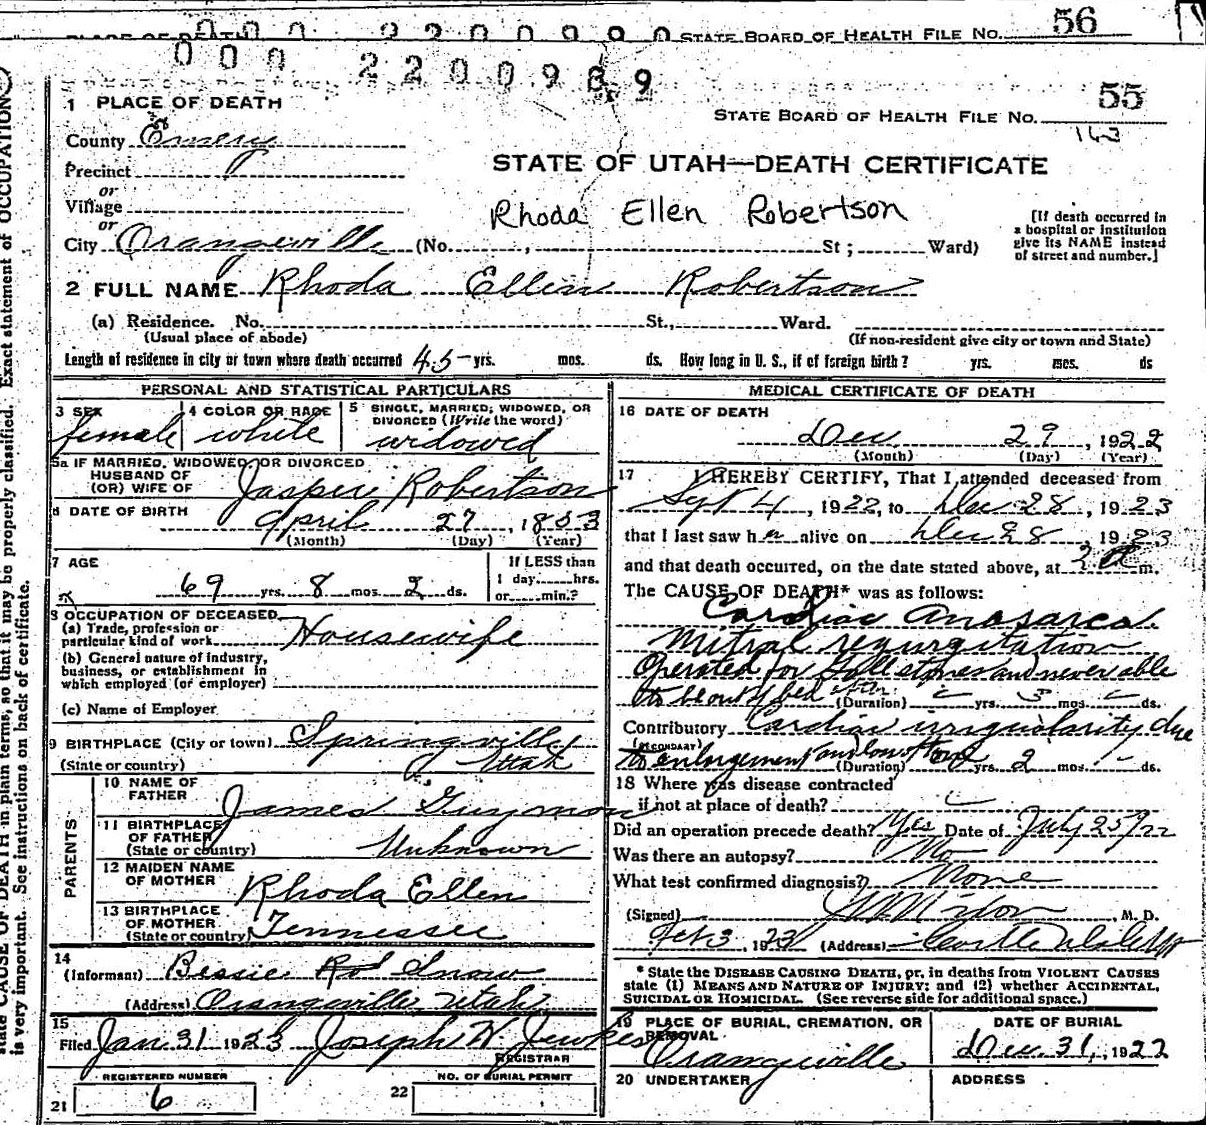 PLACE OF DEATH 000 2200990 STATE BOARD OF HEALTH FILE NO. 56
000 2200989
1 PLACE OF DEATH
STATE BOARD OF HEALTH FILE NO. 55
163
County Emery
STATE OF UTAH—DEATH CERTIFICATE
Precinct
or
Village
or
Rhoda Ellen Robertson
City Orangeville (No. , St; Ward)
[If death occurred in
a hospital or institution
give its NAME instead
of street and number.]
2 FULL NAME Rhoda Ellen Robertson
(a) Residence. No. St., Ward.
(Usual place of abode) (If non-resident give city or town and State)
Length of residence in city or town where death occurred 45 yrs. mos. ds. How long in U. S., if of foreign birth? yrs. mos. ds
PERSONAL AND STATISTICAL PARTICULARS
3 SEX
female
4 COLOR OR RACE
white
5 SINGLE, MARRIED, WIDOWED, OR
DIVORCED (Write the word)
widowed
5a IF MARRIED, WIDOWED, OR DIVORCED
HUSBAND OF
(OR) WIFE OF Jasper Robertson
6 DATE OF BIRTH
April 27, 1853
(Month) (Day) (Year)
7 AGE
69 yrs. 8 mos. 2 ds.
If LESS than
1 day......hrs.
or......min.?
8 OCCUPATION OF DECEASED
(a) Trade, profession or
particular kind of work Housewife
(b) General nature of industry,
business, or establishment in
which employed (or employer)
(c) Name of Employer
9 BIRTHPLACE (City or town) Springville
(State or country) Utah
PARENTS
10 NAME OF
FATHER James Guymon
11 BIRTHPLACE
OF FATHER
(State or country) Unknown
12 MAIDEN NAME
OF MOTHER Rhoda Ellen
13 BIRTHPLACE
OF MOTHER
(State or country) Tennessee
14
(Informant) Bessie Snow
(Address) Orangeville, Utah
15
Filed Jan 31 1923 Joseph W. Jewkes
REGISTRAR
REGISTERED NUMBER
21 6
NO. OF BURIAL PERMIT
22
MEDICAL CERTIFICATE OF DEATH
16 DATE OF DEATH
Dec 29, 1922
(Month) (Day) (Year)
17 I HEREBY CERTIFY, That I attended deceased from
Sept 4, 1922, to Dec 28, 1923
that I last saw her alive on Dec 28, 1923
and that death occurred, on the date stated above, at m.
The CAUSE OF DEATH* was as follows:
Cardiac Anasarca.
Mitral regurgitation
Operated for Gall stones and never able
to be out of bed after.
(Duration) yrs. 3 mos. ds.
Contributory Cardiac irregularity due
(SECONDARY) to enlargement and loss of
(Duration) yrs. 2 mos. - ds.
18 Where was disease contracted
if not at place of death?
Did an operation precede death? Yes Date of July 25 1922
Was there an autopsy? No
What test confirmed diagnosis? None
(Signed) , M. D.
Feb 3, 1923 (Address) Castle Dale Ut
* State the DISEASE CAUSING DEATH, or, in deaths from VIOLENT CAUSES
state (1) MEANS AND NATURE OF INJURY; and (2) whether ACCIDENTAL,
SUICIDAL OR HOMICIDAL. (See reverse side for additional space.)
19 PLACE OF BURIAL, CREMATION, OR
REMOVAL
Orangeville
DATE OF BURIAL
Dec. 31, 1922
20 UNDERTAKER
ADDRESS
state CAUSE OF DEATH in plain terms, so that it may be properly classified. Exact statement of OCCUPATION
is very important. See instructions on back of certificate.